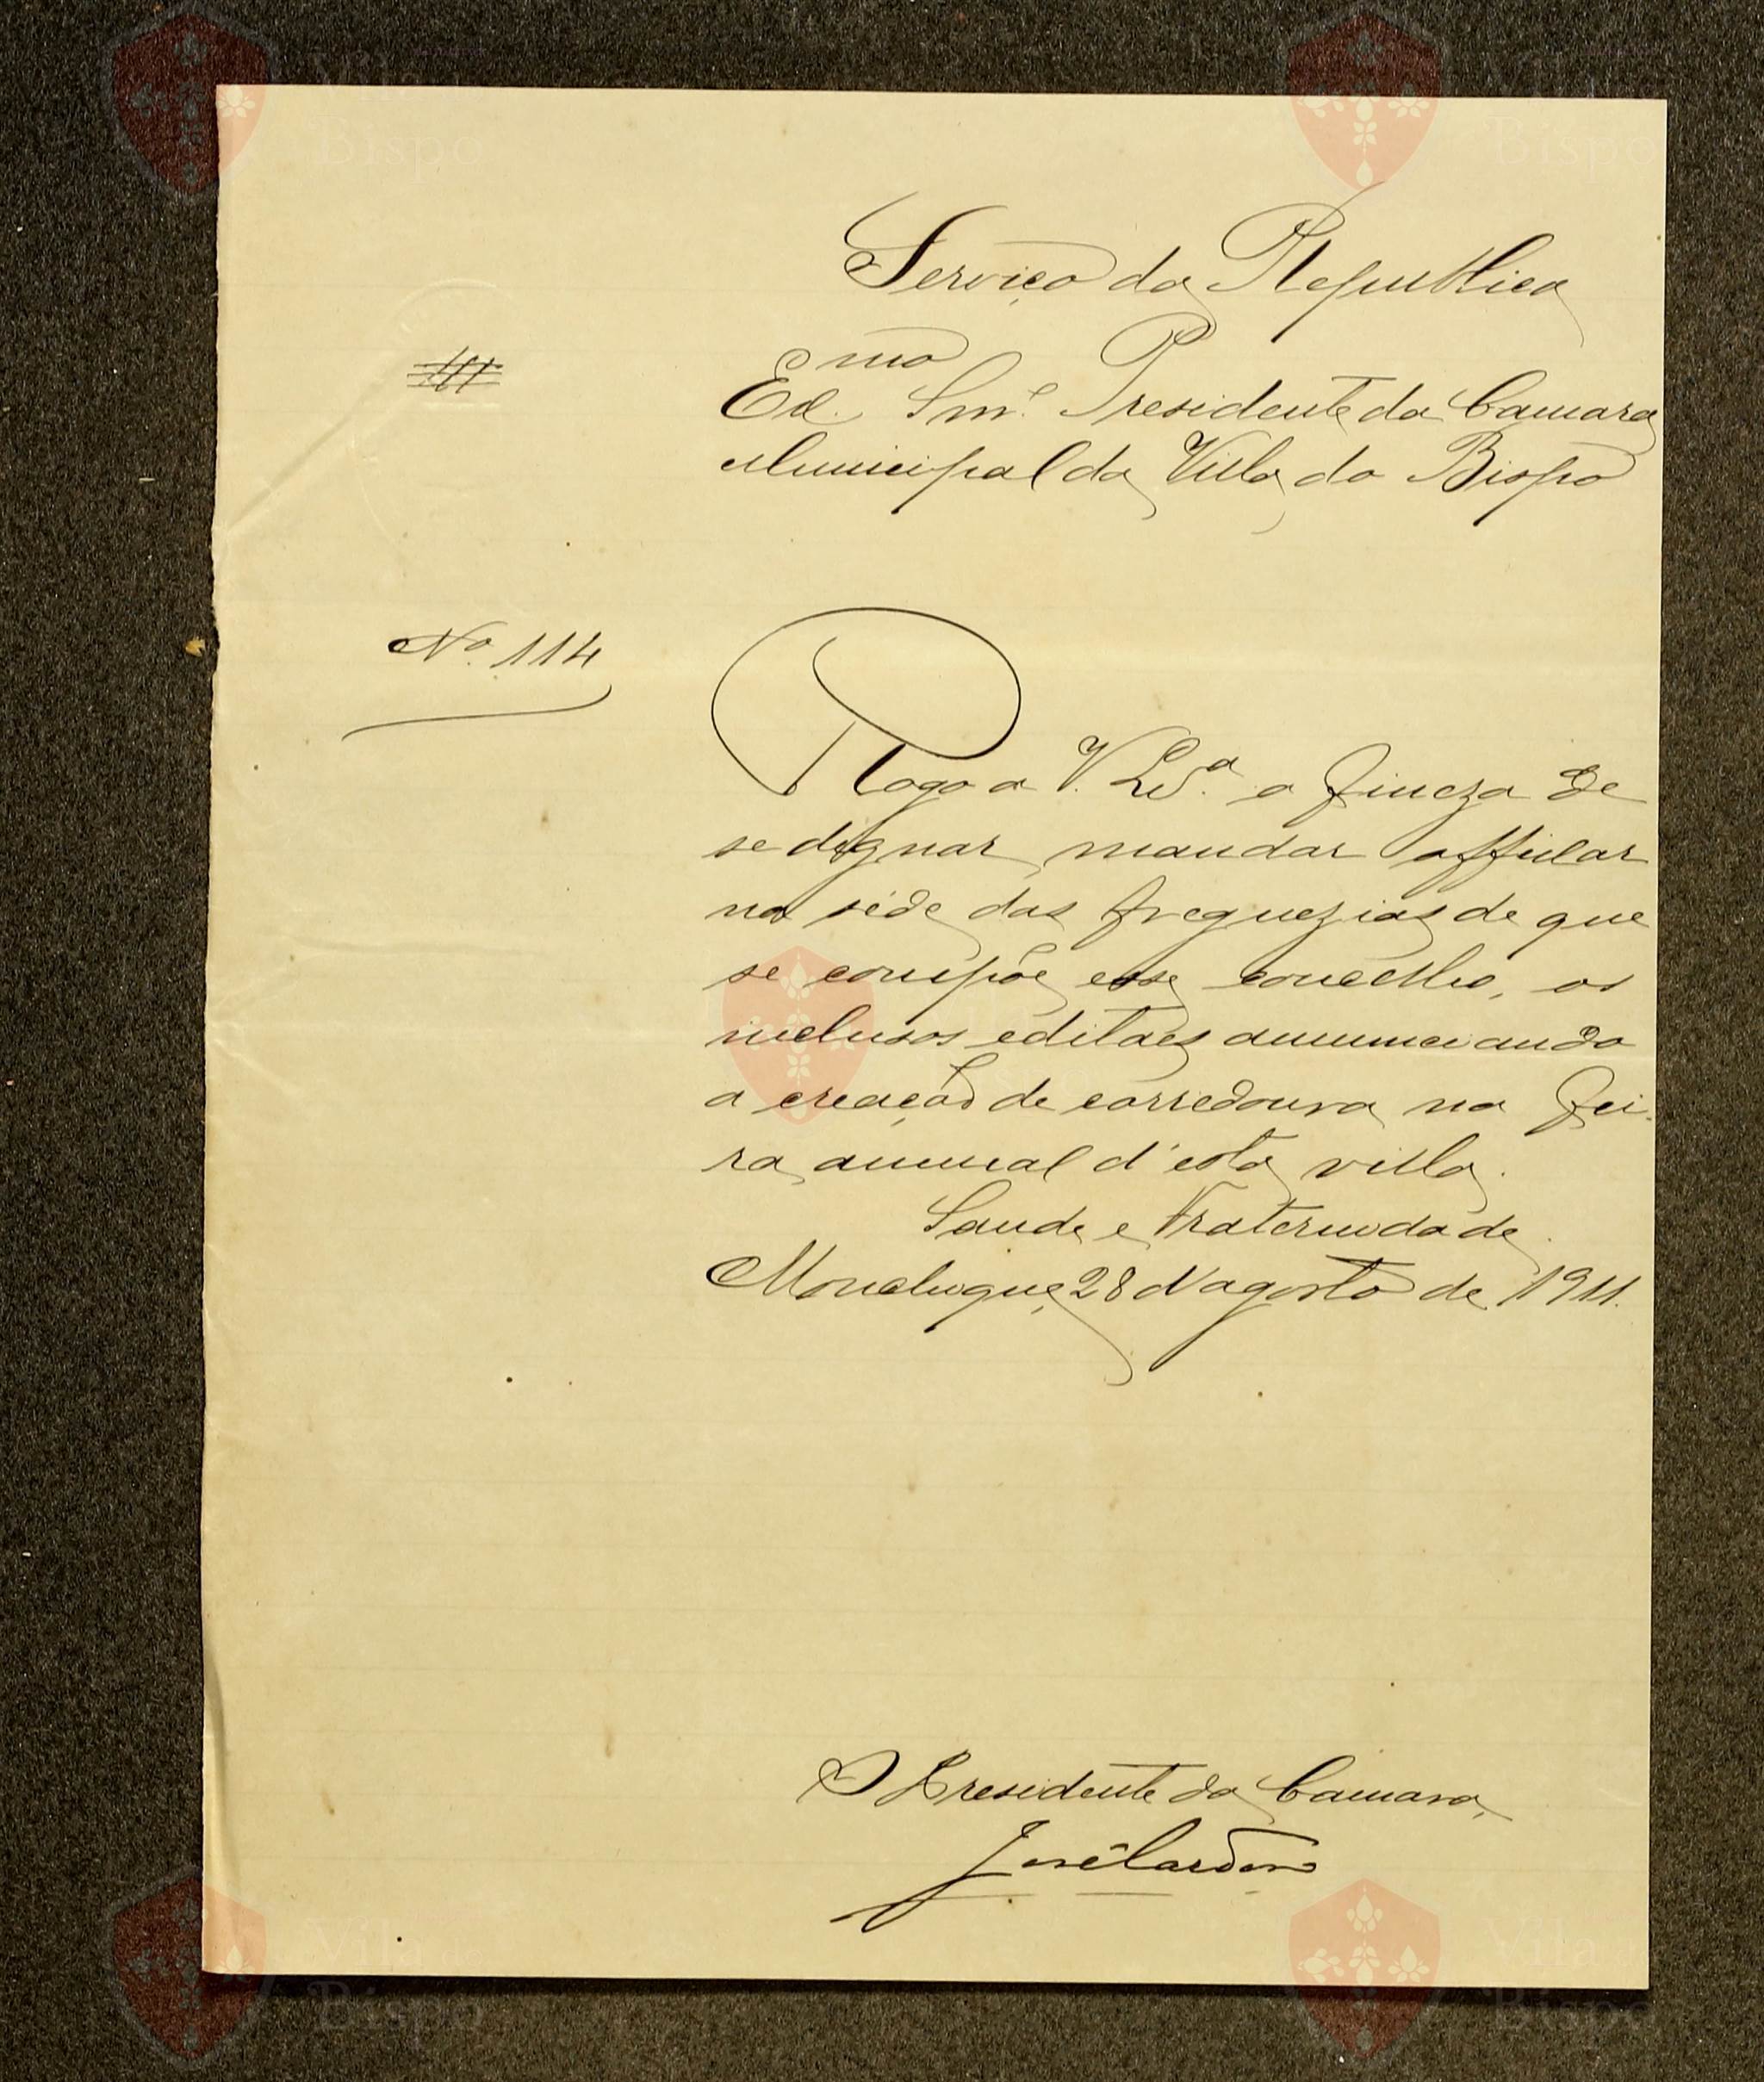 Serviço da Republica
Ex.mo Snr. Presidente da Camara
Municipal da Villa do Bispo
Nº 114
Rogo a V. Ex.ª a fineza de
se dignar mandar affixar
na séde das freguezias de que
se compõe esse concelho, os
inclusos editaes annunciando
a creação de corredoura na fei-
ra annual d'esta villa.
Saude e Fraternidade.
Monchique, 28 d'agosto de 1911.
O Presidente da Camara,
José
Vila do
Bispo